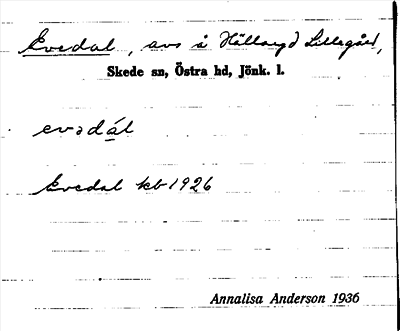 Evedal, avs å Hällaryd Lillegård,
Skede sn, Östra hd, Jönk. l.
evədál
Evedal kb 1926
Annalisa Anderson 1936